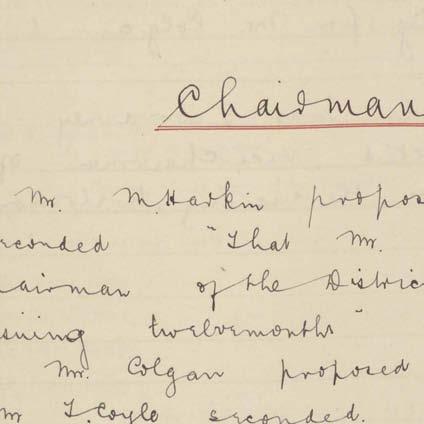 Chairman
Mr. M. Harkin propos
econded "That Mr.
hairman of the Distric
suing twelvemonths"
Mr. Colgan proposed
Mr T. Coyle seconded.